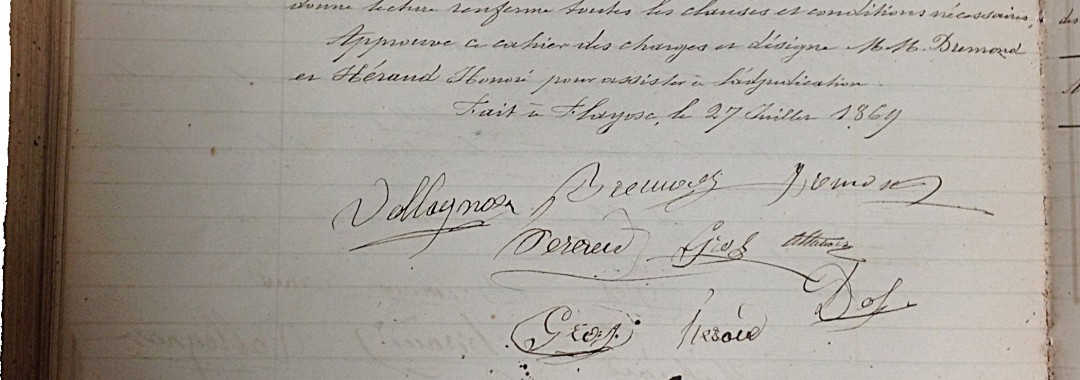 donne lecture renferme toutes les clauses et conditions nécessaires,
Approuve ce cahier des charges et désigne M.M. Bremond
et Héraud Honoré pour assister à l'adjudication.
Fait à Flayosc, le 27 Juillet 1869
Bremond
Gros
Dol
Gros Heraud